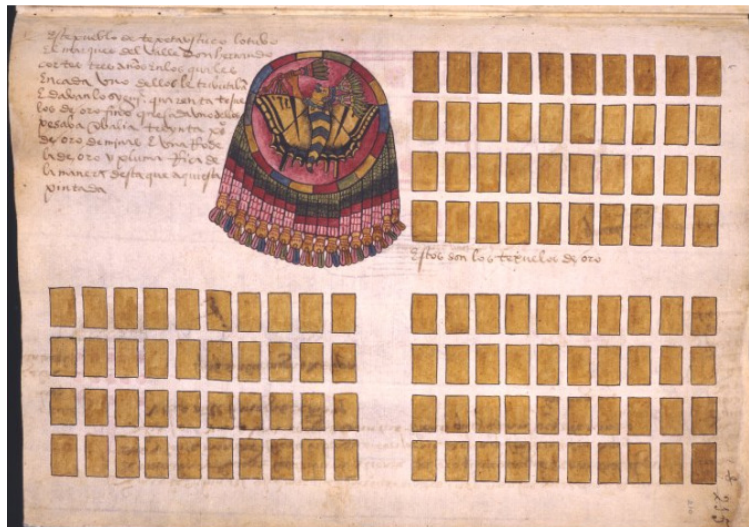 este pueblo de tepetaustuco lo tubo
El marques del Valle Don hernando
cortes tres años En los quales
En cada Uno dellos le tributabā
E daban los yndios quarenta texue
los de oro fino que cada uno dellos
pesaba E balia treynta pºs
de oro de minas E Una Rode
la de oro y pluma Rica de
la manera desta que aqui esta
pintada
Estos son los texuelos de oro